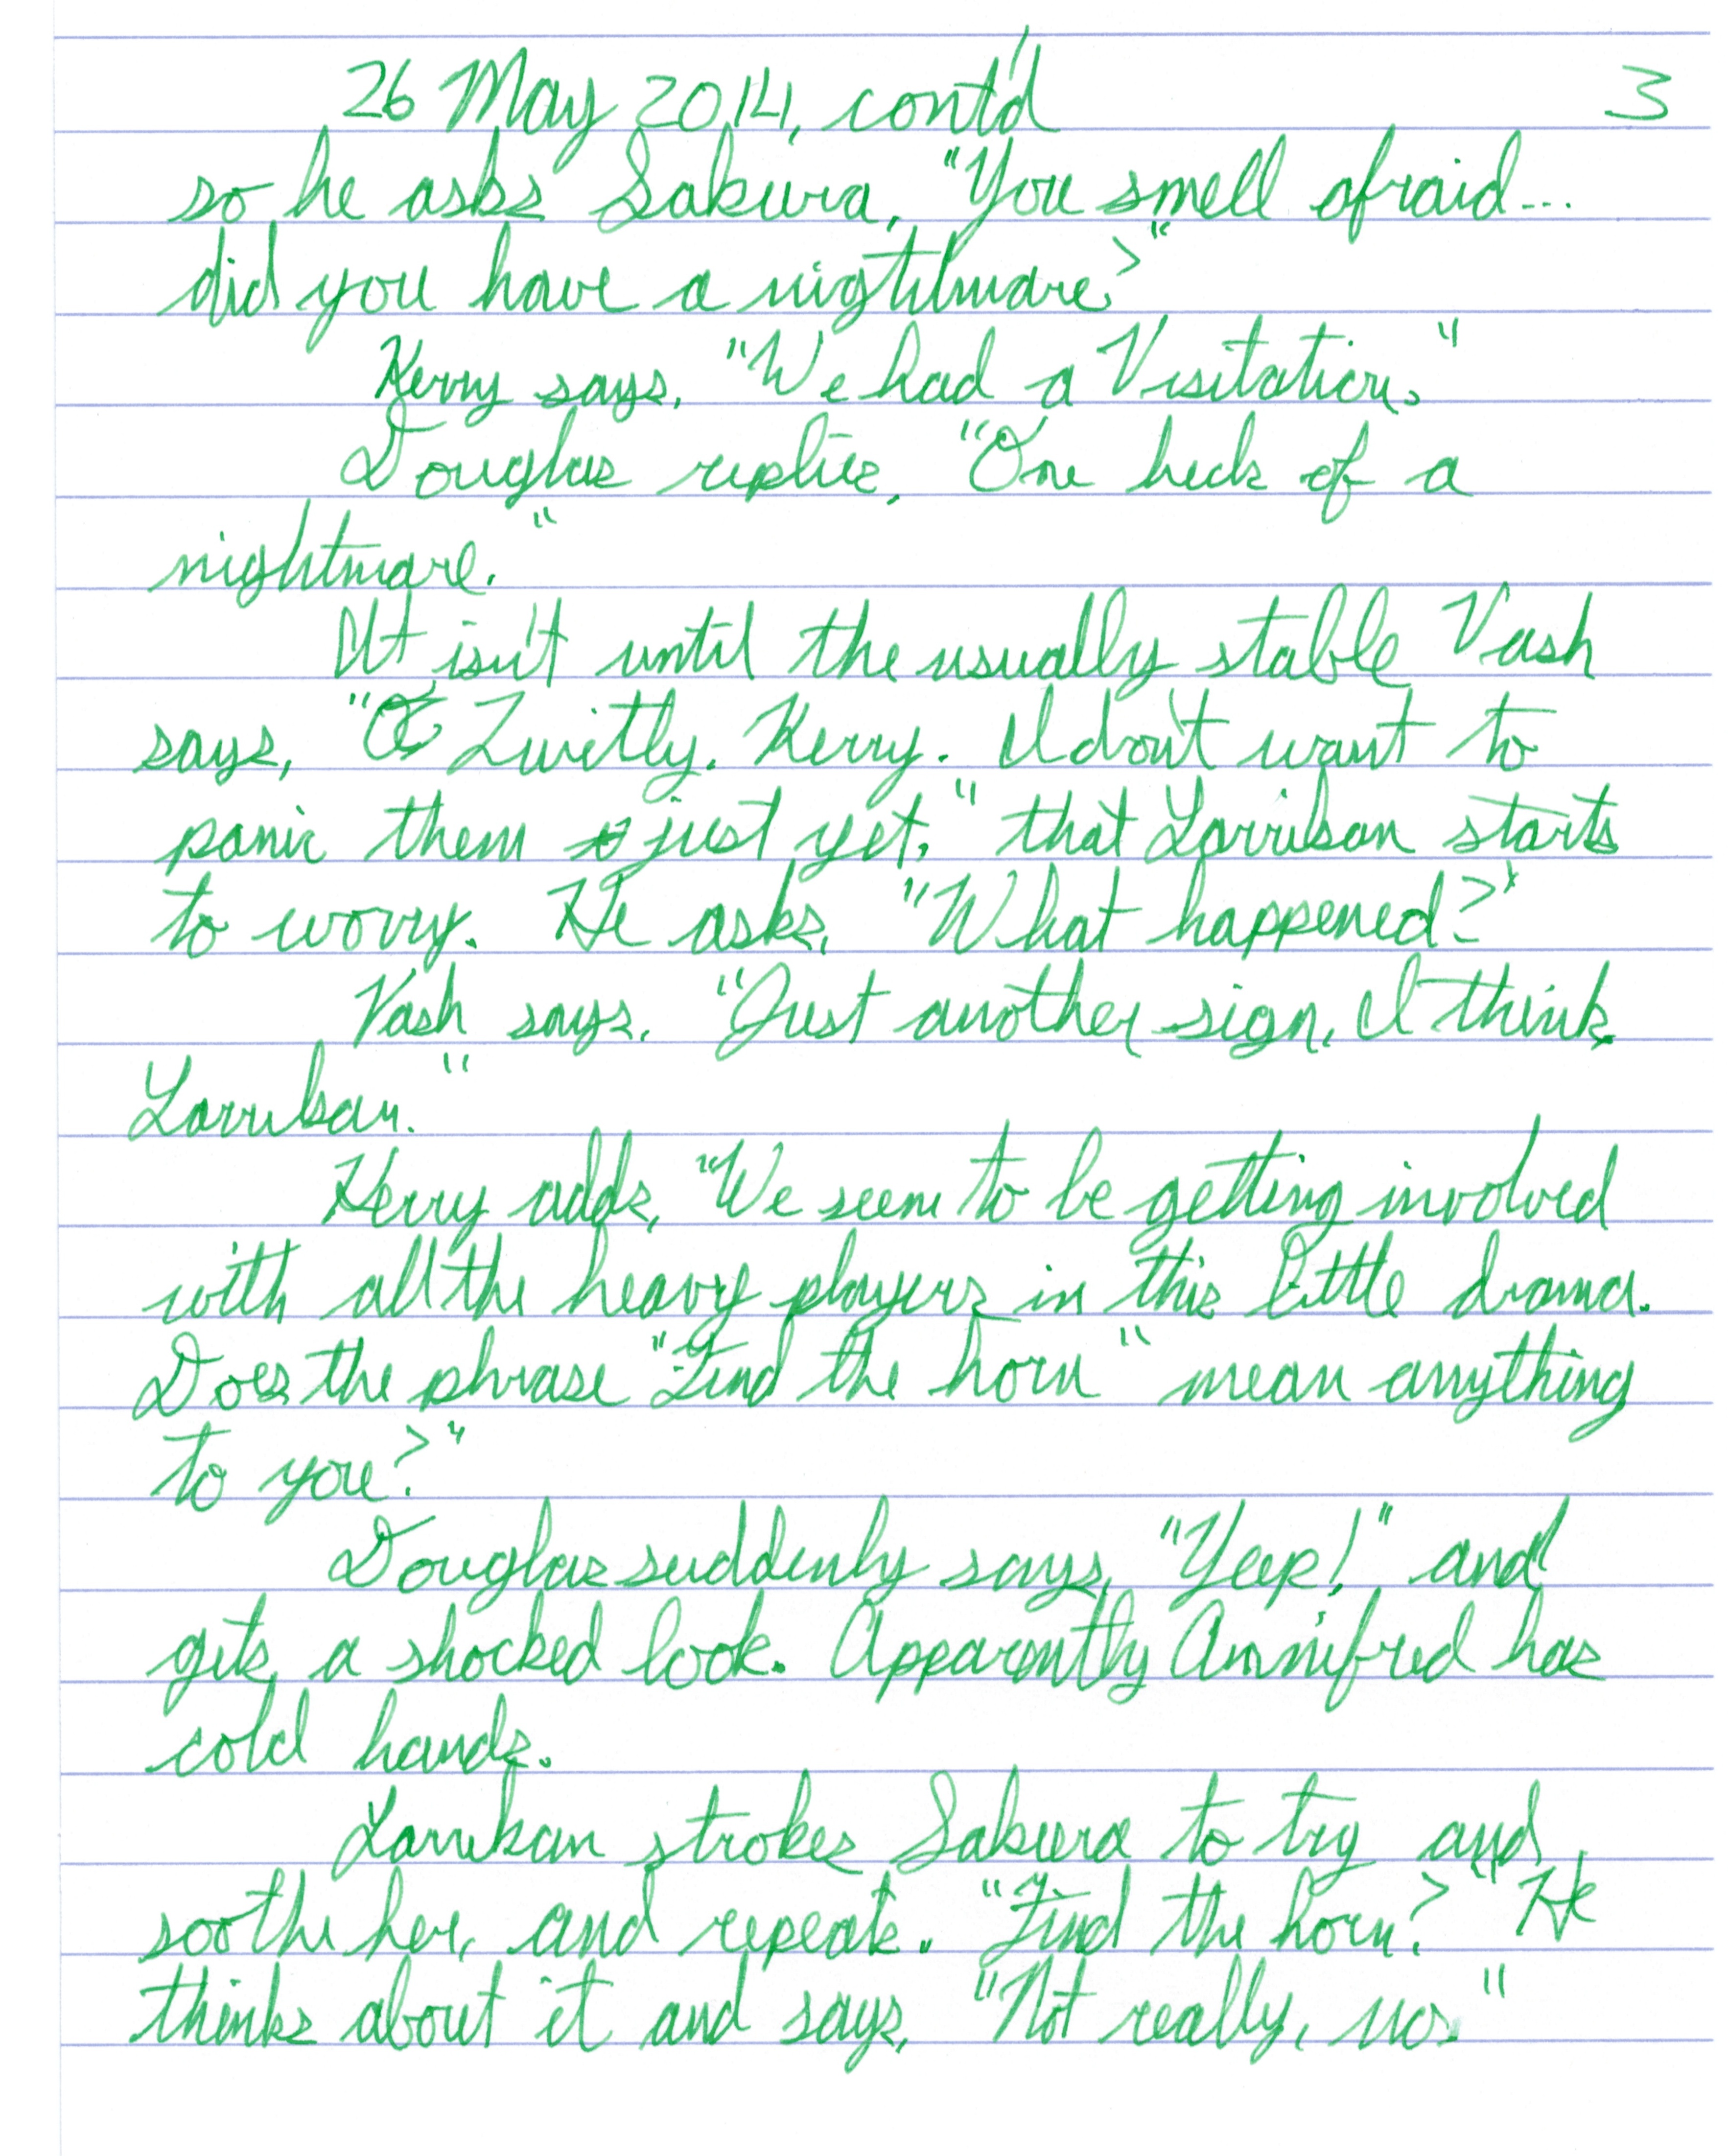 26 May 2014, cont'd 3
so he asks Sakura, "You smell afraid...
did you have a nightmare?"
Kerry says, "We had a Visitation."
Douglas replies, "One heck of a
nightmare."
It isn't until the usually stable Vash
says, "Quietly, Kerry. I don't want to
panic them just yet," that Larrikan starts
to worry. He asks, "What happened?"
Vash says, "Just another sign, I think
Larrikan."
Kerry adds, "We seem to be getting involved
with all the heavy players in this little drama.
Does the phrase "Find the horn" mean anything
to you?"
Douglas suddenly says, "Yeep!" and
gets a shocked look. Apparently Annifred has
cold hands.
Larrikan strokes Sakura to try and
soothe her, and repeats. "Find the horn?" He
thinks about it and says, "Not really, no."